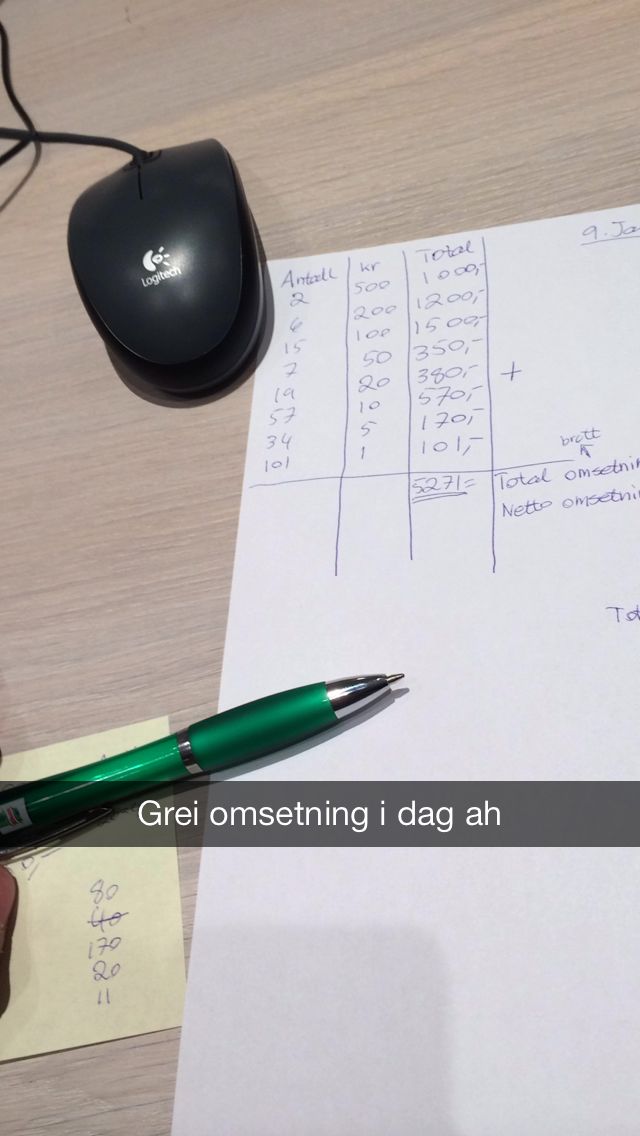 Logitech
9. Ja
Antall kr Total
2 500 1000,-
6 200 1200,-
15 100 1500,-
7 50 350,-
19 20 380,- +
57 10 570,-
34 5 170,-
101 1 101,-
brutt
5271= Total omsetnin
Netto omsetni
Tot
Grei omsetning i dag ah
80
40
170
20
11